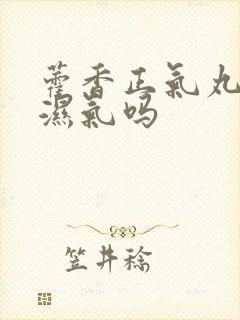 藿香正氣丸
濕氣吗
笠井稔